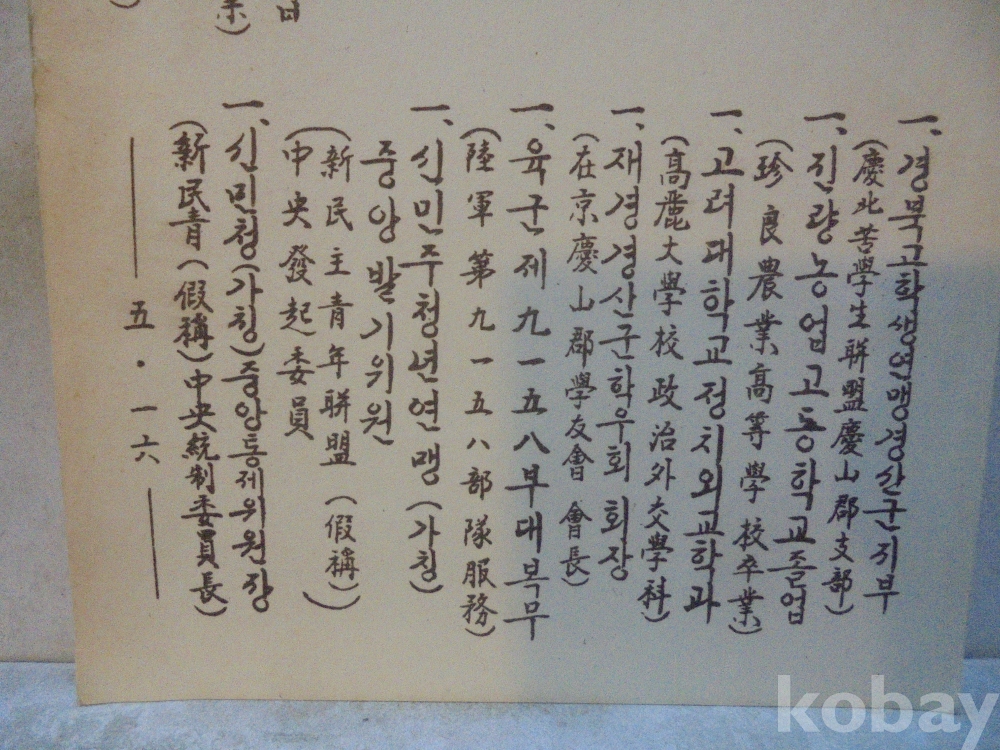 一. 경북고학생연맹경산군지부
(慶北苦學生聯盟慶山郡支部)
一. 진량농업고등학교졸업
(珍良農業高等學校卒業)
一. 고려대학교정치외교학과
(高麗大學校政治外交學科)
一. 재경경산군학우회 회장
(在京慶山郡學友會 會長)
一. 육군제九一五八부대복무
(陸軍第九一五八部隊服務)
一. 신민주청년연맹(가칭)
중앙발기위원
(新民主青年聯盟(假稱)
中央發起委員)
一. 신민청(가칭)중앙통제위원장
(新民青(假稱)中央統制委員長)
— 五·一六 —
kobay